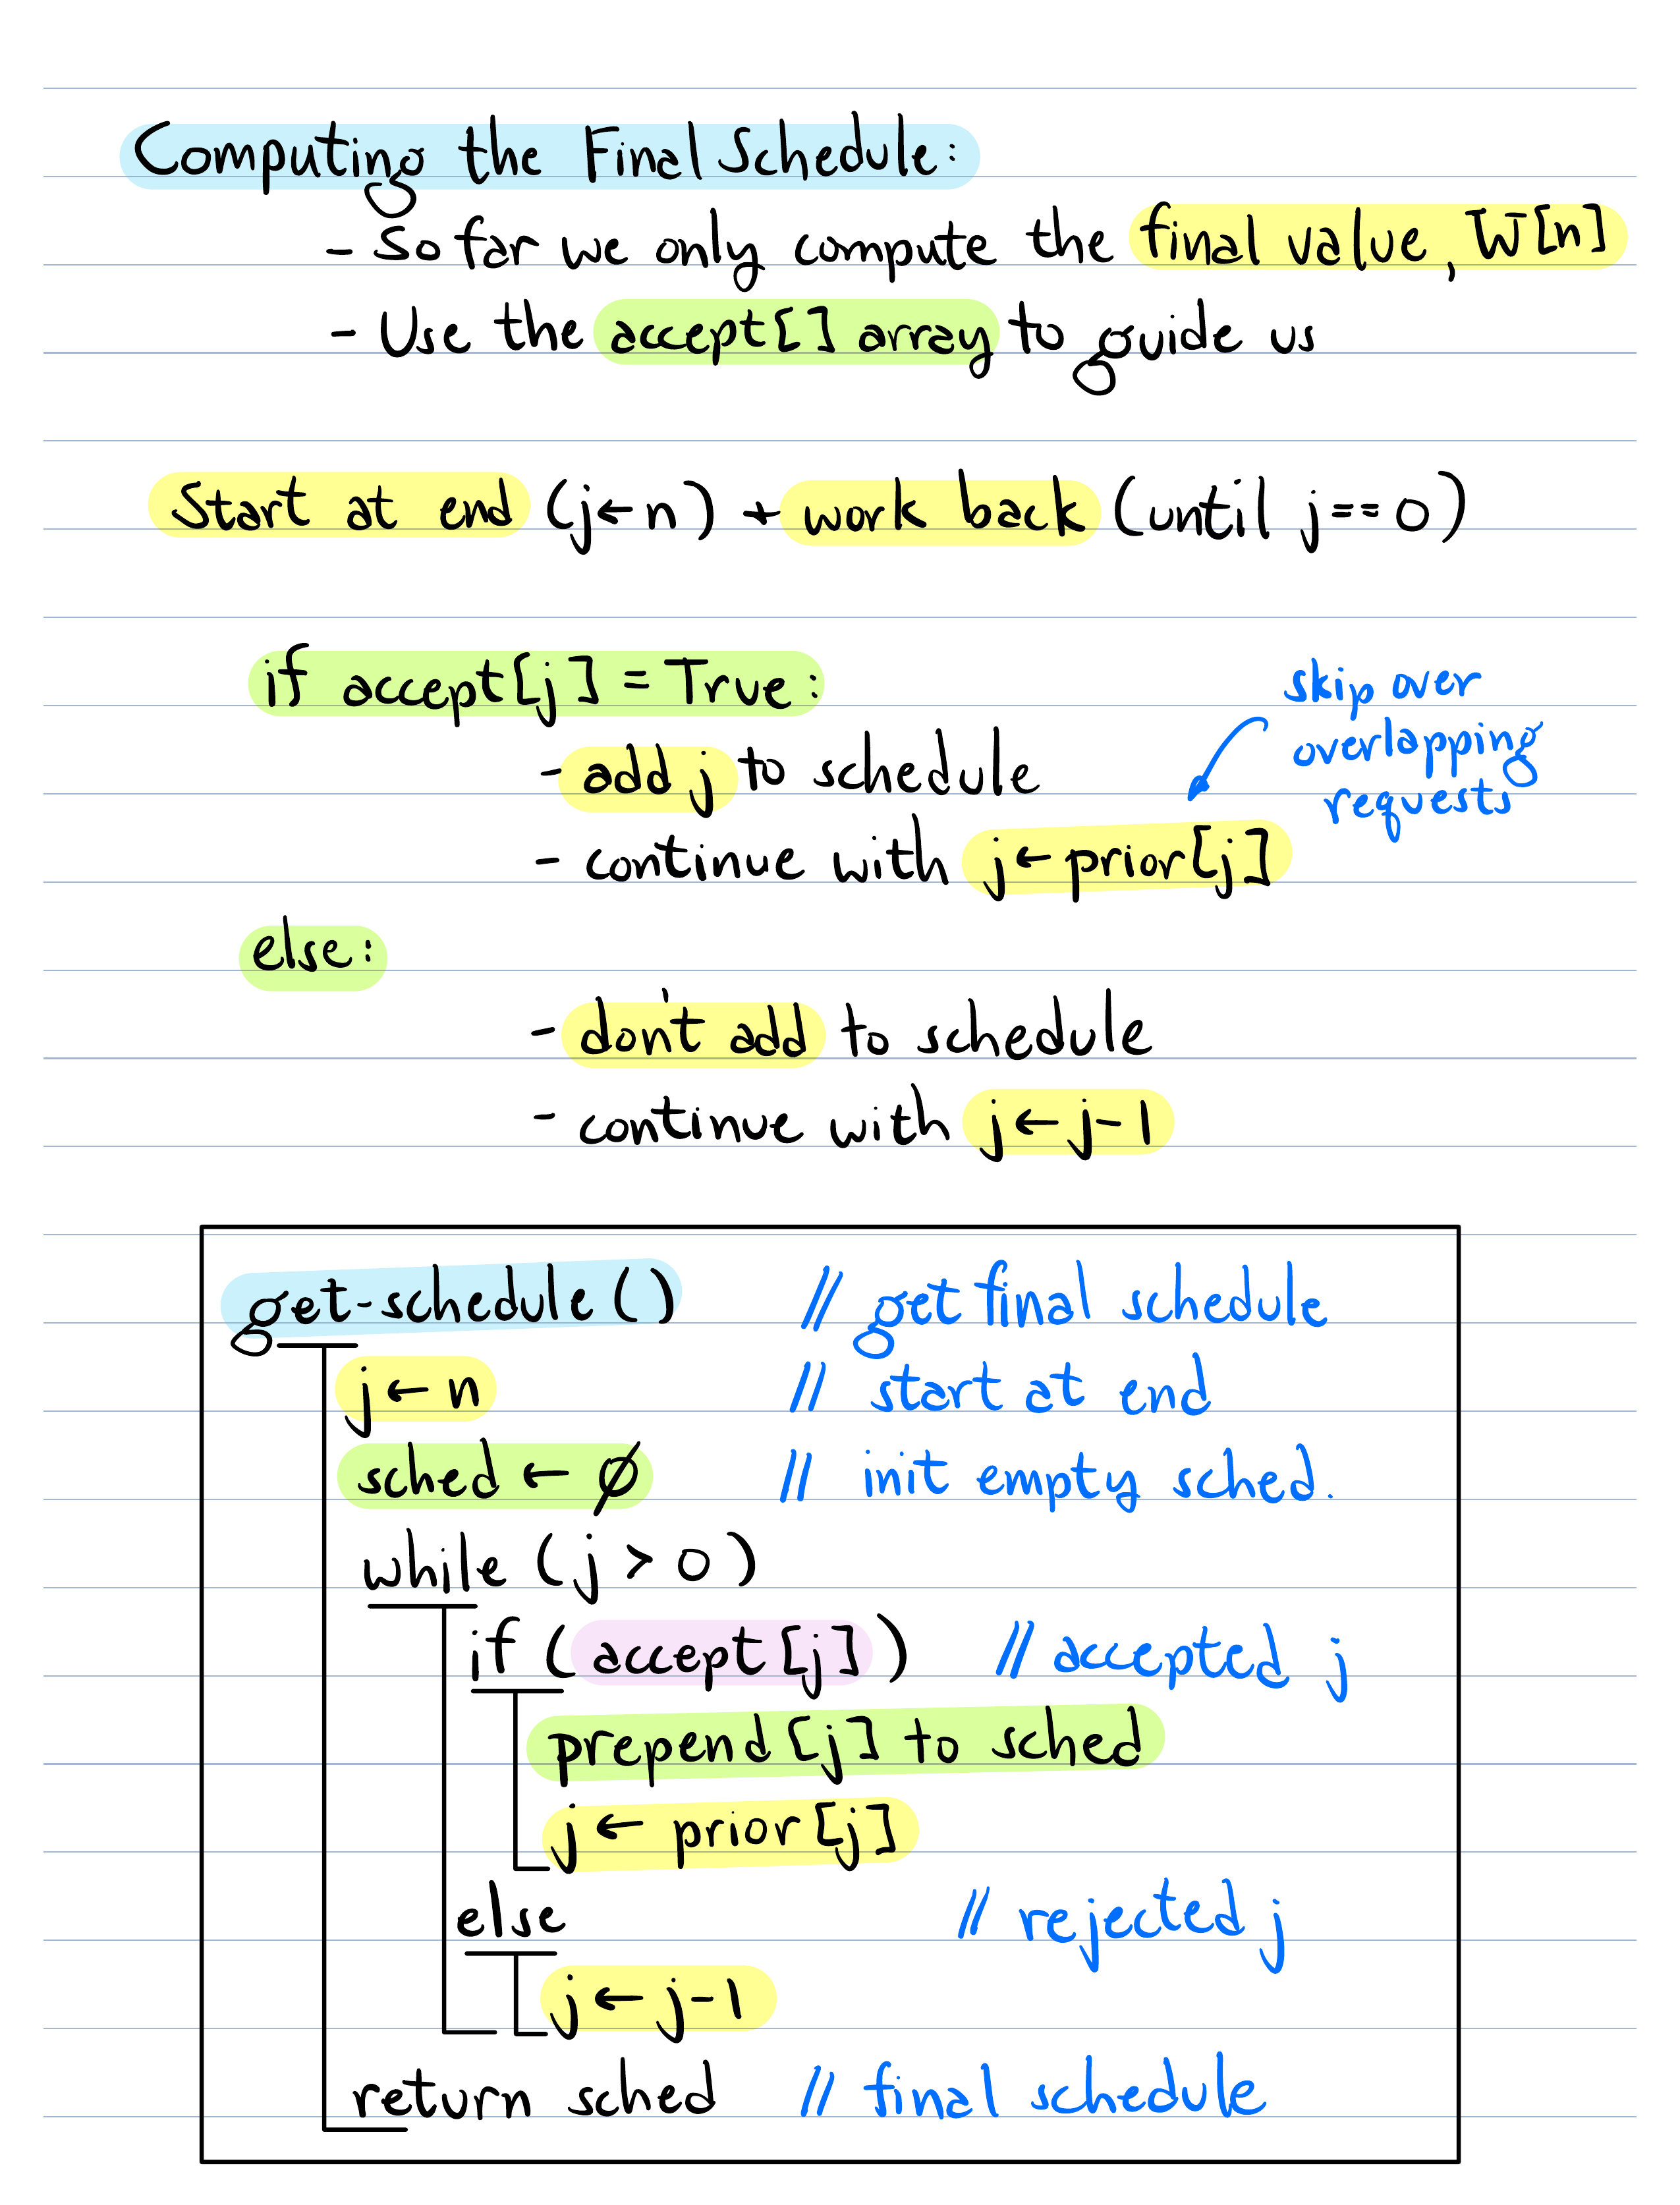 Computing the Final Schedule:
- So far we only compute the final value, W[n]
- Use the accept[] array to guide us
Start at end (j←n) + work back (until j==0)
if accept[j] = True:
- add j to schedule
- continue with j←prior[j]
skip over
overlapping
requests
else:
- don't add to schedule
- continue with j←j-1
get-schedule() // get final schedule
j←n // start at end
sched ← ∅ // init empty sched.
while (j > 0)
if (accept[j]) // accepted j
prepend [j] to sched
j ← prior[j]
else // rejected j
j ← j-1
return sched // final schedule